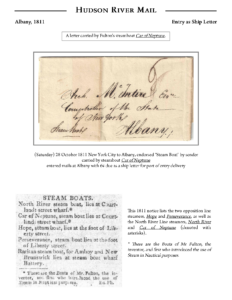 HUDSON RIVER MAIL
Albany, 1811 Entry as Ship Letter
A letter carried by Fulton's steamboat Car of Neptune.
6
Arch McIntire Esq
Comptroller of the State
of New York
Steam Boat Albany
(Saturday) 26 October 1811 New York City to Albany, endorsed "Steam Boat" by sender
carried by steamboat Car of Neptune
entered mails at Albany with 6c due as a ship letter for port of entry delivery
STEAM BOATS.
North River steam boat, lies at Courtlandt street wharf.*
Car of Neptune, steam boat lies at Courtlandt street wharf.*
Hope, steam boat, lies at the foot of Liberty street.
Perseverance, steam boat lies at the foot of Liberty street.
Raritan steam boat, for Amboy and New Brunswick lies at steam boat wharf Battery.
* These are the Boats of Mr. Fulton, the
This 1811 notice lists the two opposition line
steamers, Hope and Perseverance, as well as
the North River Line steamers, North River
and Car of Neptune (denoted with
asterisks).
* These are the Boats of Mr. Fulton, the
inventor, and first who introduced the use of
Steam in Nautical purposes.